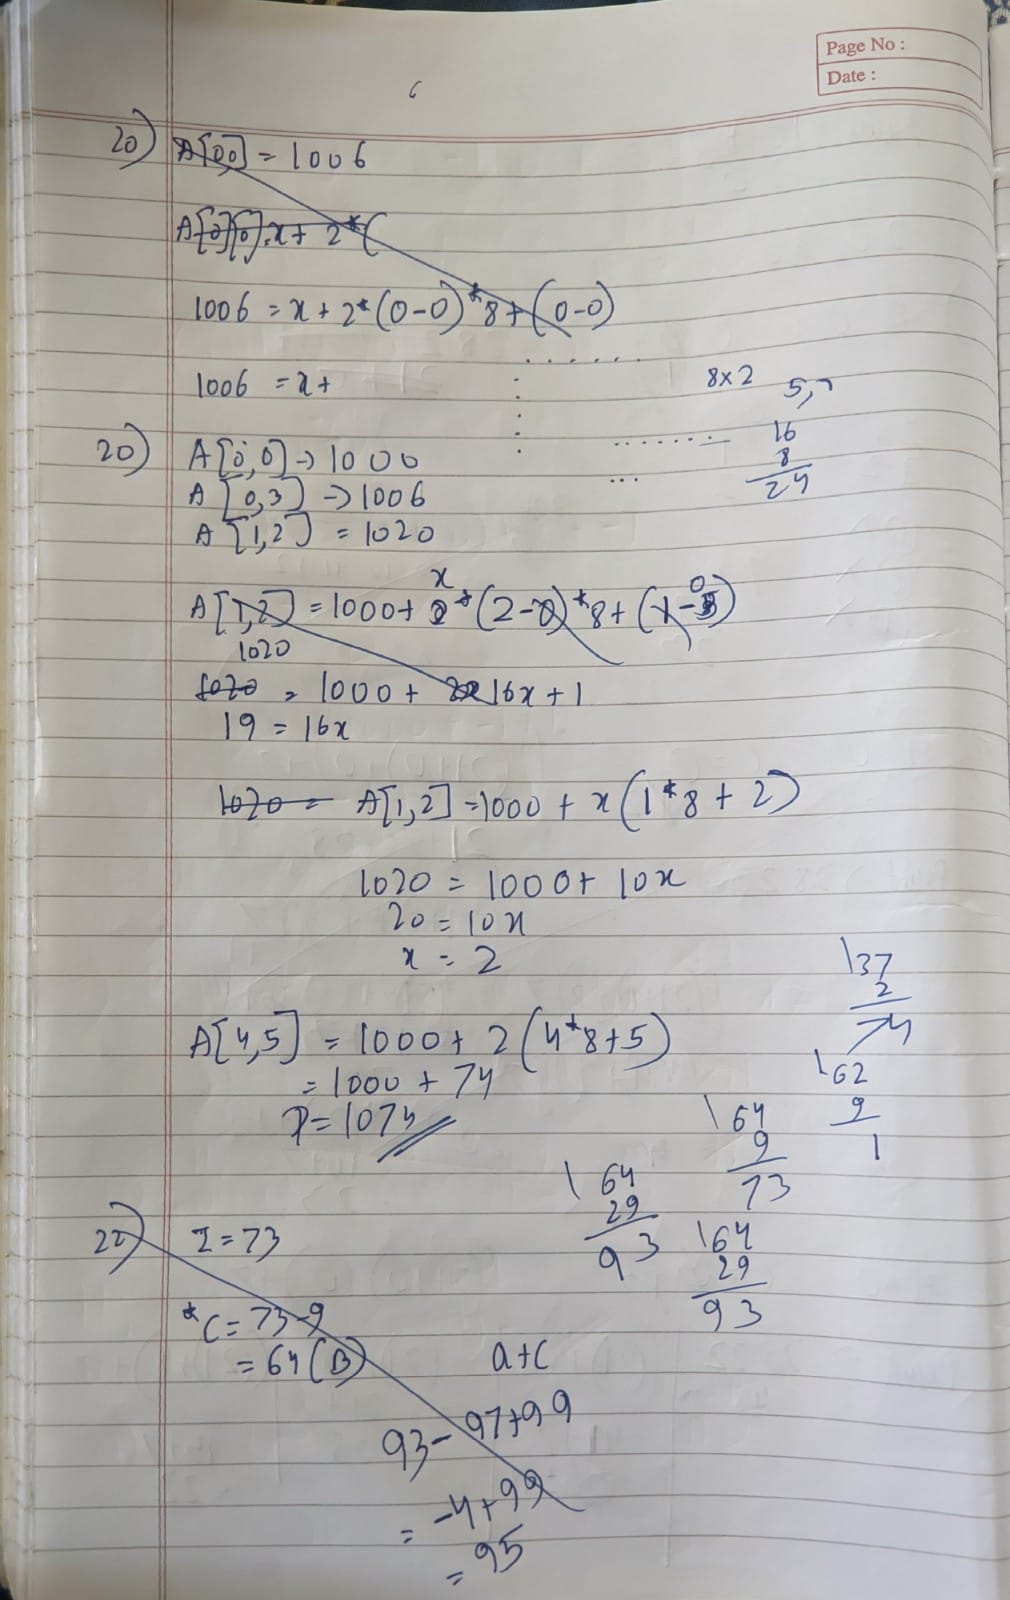 Page No :
Date :
20) A[0,0] = 1006
A[0][0] = x + 2*(
1006 = x + 2*(0-0)*8+(0-0)
1006 = x +
8x2
16
8
24
20) A[0,0] -> 1000
A[0,3] -> 1006
A[1,2] = 1020
x
A[1,2] = 1000 + 2*(2-0)*8+(1-0)
1020
1020 = 1000 + 16x + 1
19 = 16x
1020 = A[1,2] = 1000 + x(1*8 + 2)
1020 = 1000 + 10x
20 = 10x
x = 2
137
2
74
A[4,5] = 1000 + 2(4*8+5)
= 1000 + 74
= 1074
162
9
1
164
9
73
1 64
29
93
164
29
93
I = 73
*C = 73-9
= 64(B)
a+c
93-97+99
= -4+99
= 95